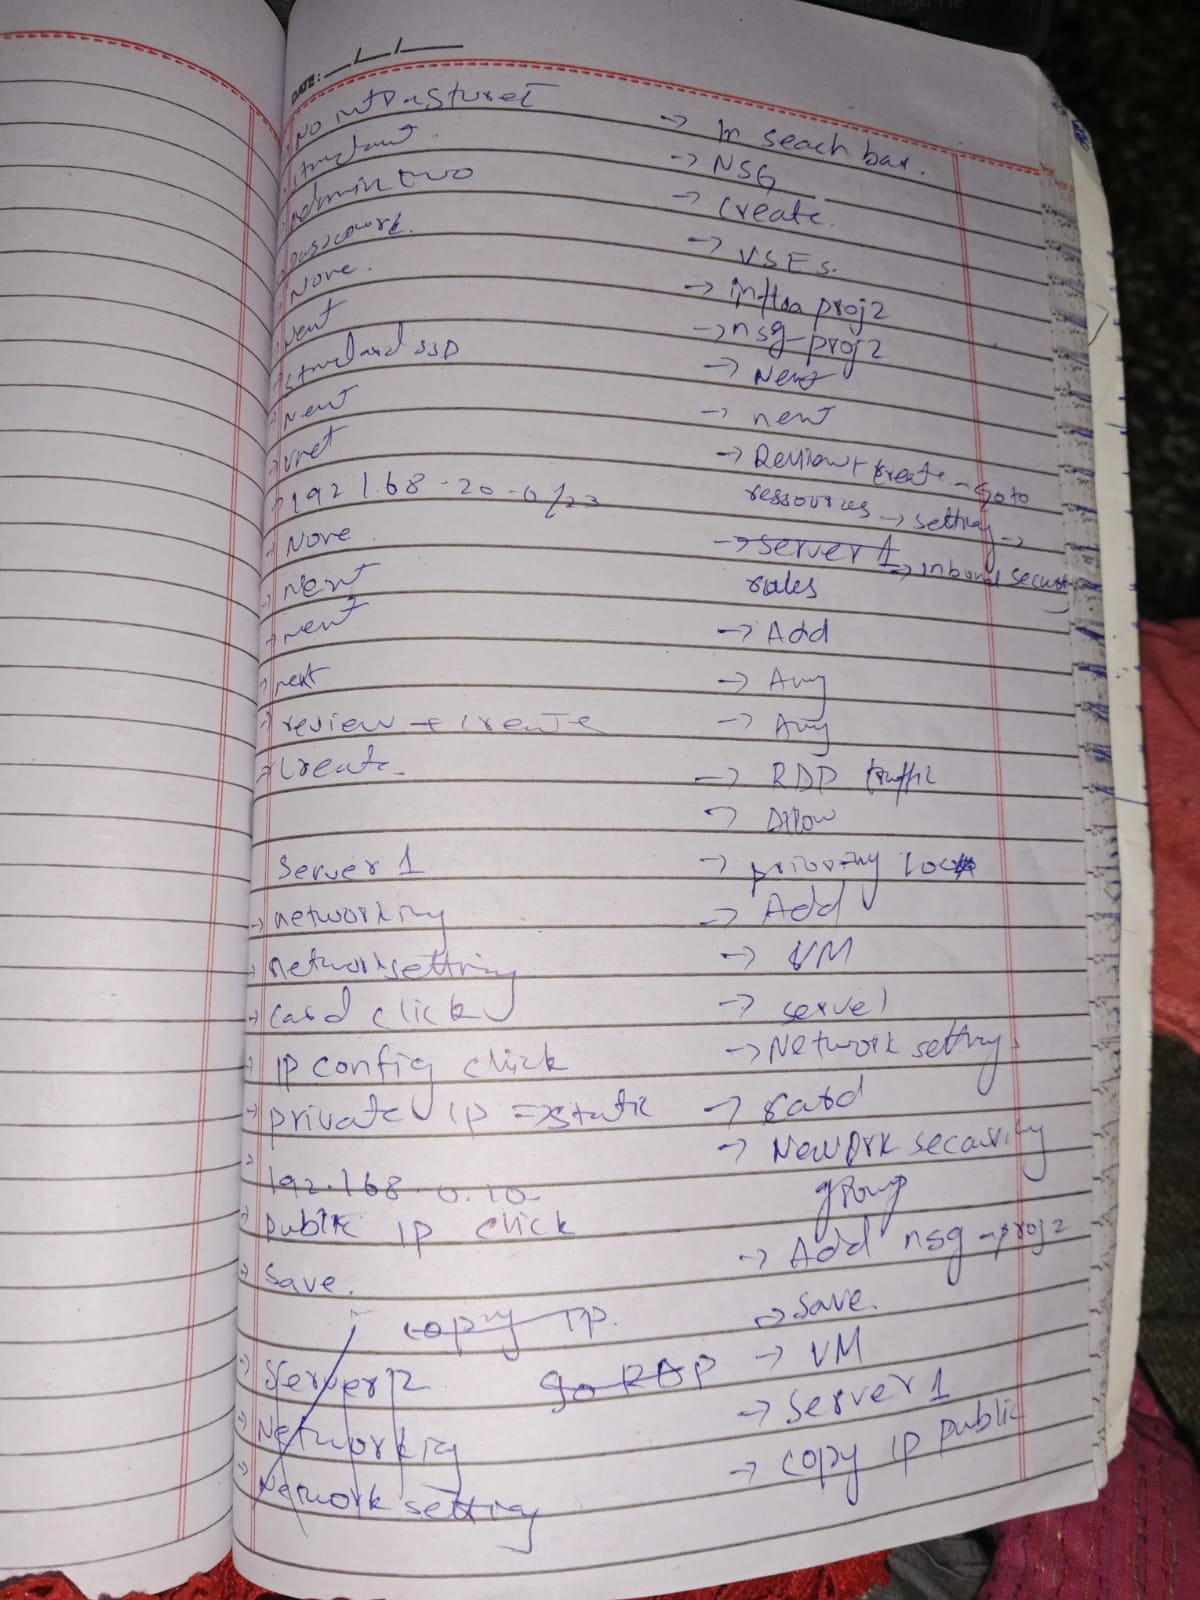 DATE: __/__/__
No
standard
Admin two
password
None.
next
standard SSD
→ Next
→ vnet
→ 192 1.68 - 20 - 0/23
→ None
→ Next
→ next
→ next
→ review + create
→ Create
Server 1
→ networking
→ network setting
→ card click
→ IP config click
→ private ip => static
→ 192.168.0.10
→ public IP click
→ Save.
copy IP.
go RDP
→ Server 2
→ Networking
→ Network setting
→ In seach bar.
→ NSG
→ Create.
→ infra proj2
→ nsg-proj2
→ Next
→ next
→ Review + create → Go to
ressources → setting →
→ server 1 → inbound security
rules
→ Add
→ Any
→ Any
→ RDP traffic
→ Allow
→ priority
→ Add
→ VM
→ server 1
→ Network setting
→ card
→ Network security
group
→ Add nsg-proj2
→ save.
→ VM
→ Server 1
→ copy ip public